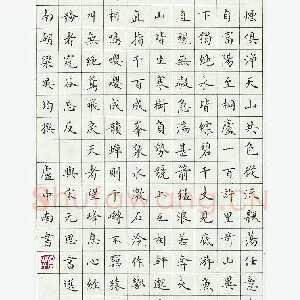 煙俱淨天山共色從流飄蕩任意
自富陽至桐廬一百許里奇山異
下獨絕水皆縹碧千丈見底
直視無礙急湍甚箭猛浪若奔
山皆生寒樹負勢競上互相軒邈
直指千百成峰泉水激石泠泠作響
相鳴嚶嚶成韻蟬則千轉不
叫無絕鳶飛戾天者望峰息心經綸
務者窺谷忘反 與宋元思書
南朝梁吳均撰 虛中南書